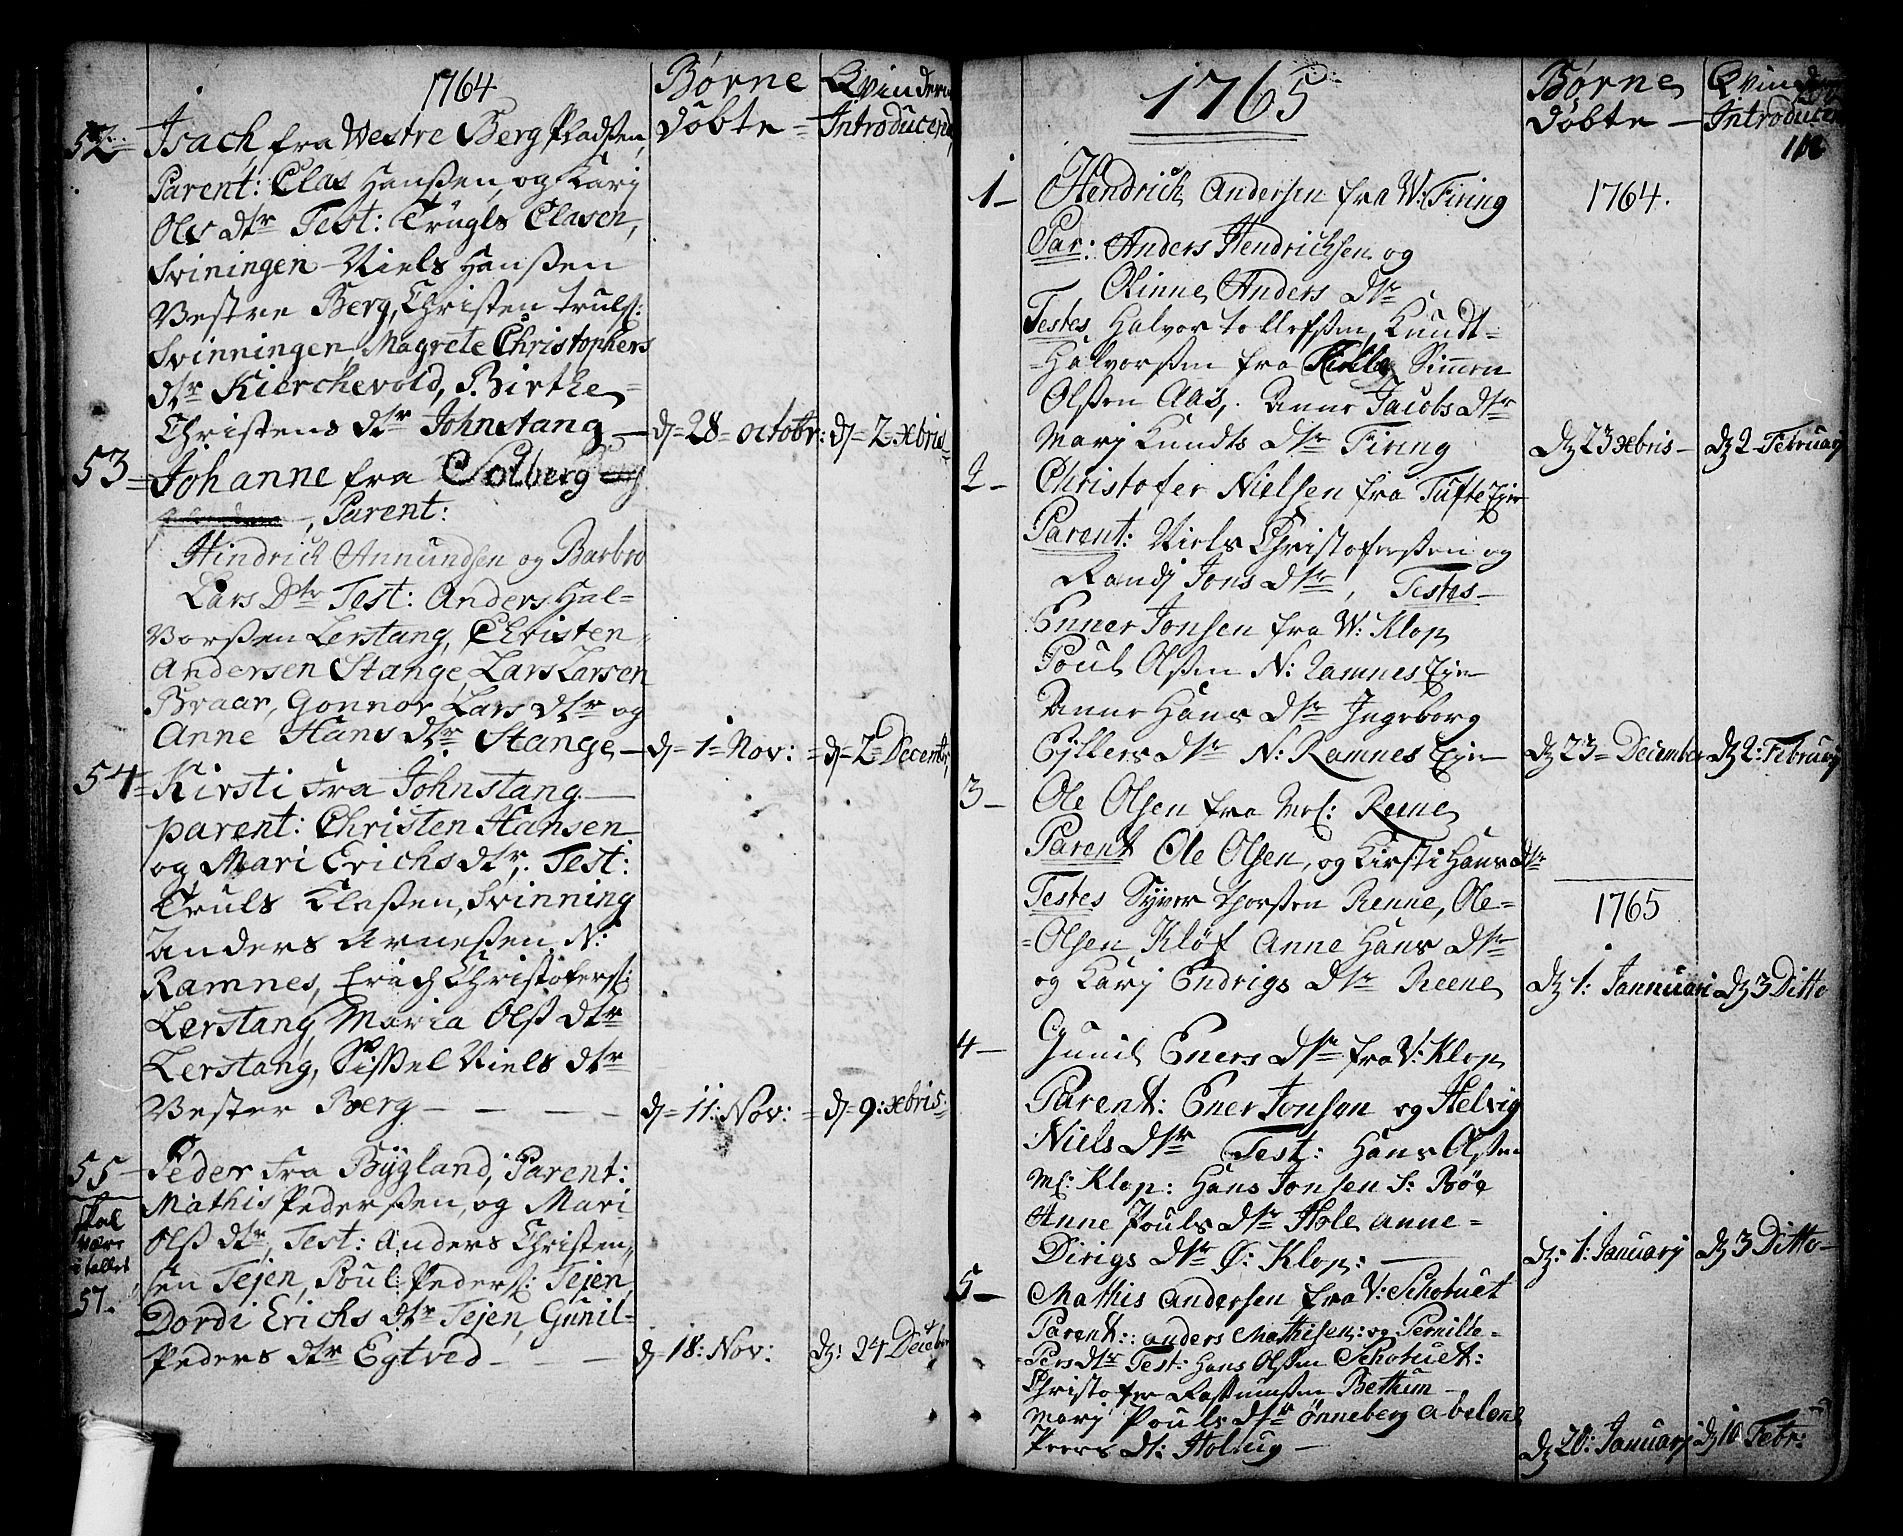 1764
Børne
døbte =
Qvinderne
Introducerede
52 =
Isach, fra Westre Berg Pladsen,
Parent: Clas Hanßen, og Karj
Ols dtr Test: Trügls Clasen,
Sviningen - Niels Hanßen
Vestre Berg, Christen truls:
Svinningen, Magrete Christophers
dtr Kierchevold, Birthe
Christens dtr Johnstang — d = 28 = octobr: d = 2 = xbris =
53 =
Johanne fra Solberg
, Parent:
Hindrich Amundsen og Barbro
Lars Dtr Test: Anders Hal-
vorßen Lerstang, Christen
Andersen Stange, Lars Larsen
Braar, Gonnor Lars dtr og
Anne Hans dtr Stange — d = 1 = Nov: = d = 2 = Decembr,
54 =
Kirsti fra Johnstang —
parent: Christen Hansen
og Mari Erichs dtr, Test:
Truls Claßen, Svinning
Anders Arneßen N:
Ramnes, Erich Christofers:
Lerstang, Maria Olß dtr
Lerstang, Sißel Niels dtr
Vester Berg — — — — d = 11: Nov: = d = 9: xbris =
55 —
Peder fra Bÿgland, Parent:
Mathis Pederßen, og Mari
Olß dtr, Test: Anders Christen,
sen Tejen, Poul Peders: Tejen
Dordi Erichs dtr Tejen, Gunil-
Peders dtr Egtved — — — d = 18: Nov: d: 24 Decebr
skal
være
i tallet
57.
1765
Børne
døbte —
Qvinder
Introducer
116
1764.
1 —
Hendrich Andersen fra W: Firing
Par: Anders Hendrichsen og
Olinne Anders Dtr
Testes Halvor tollefßen, Knudt =
= Halvorßen fra Simen
Olßen Aas, Anne Jacobs dtr
Marj Knudts Dtr Firing d 23 xbris — d 2 - Februarj
2 —
Christofer Nielsen fra Tufte Eje
Parent: Niels Christoferßen og
Randj Jons Dtr, Testes —
Enner Jonsen fra W: Klop
Poul Olßen N: Ramnes Eje
Anne Hans Dtr Ingeborg
Ejllers Dtr N: Ramnes Eje — d 23 = December d 2: Februarj
3 —
Ole Olsen fra Ml: Reene
Parent Ole Olsen, og Kirsti Hans Dtr
Testes Syver thorßen Renne, Ole =
= Olsen Kløf Anne Hans Dtr
og Karj Endrigs Dtr Reene
1765
d 1: Jannuari d 3 Ditto
4 —
Gunil Eners Dtr fra V: Klop
Parent: Ener Jonsen og Helvig
Niels Dtr Test: Hans Olßen
Ml: Klop: Hans Jonsen S: Bøe
Anne Pouls Dtr Hole anne =
Dirigs Dtr Ø: Klop: — d: 1: Januarj d 3 Ditto —
5 —
Mathis Andersen fra V: Schotuet
Parent: anders Mathisen: og Pernille =
= Pers dtr Test: Hans Olßen Schotuet:
Christofer Rasmusßen Bettum —
Marj Pouls dtr Ønneberg abelone
Peers dt: Holtug — d 20: Januarj d 10 Febr: